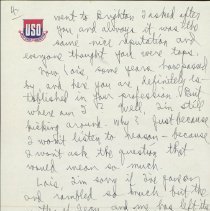 USO
went to Brighton I asked after
you and always it was the
same nice reputation
everyone thought you were tops.
Now Lois, some years have passed
by and her you are definitely es-
tablished in your profession. But
where am I? Well, I'm still
kicking around. Why? just because
I won't listen to reason - because
I won't ask the question that
would mean so much.
Lois, I'm sorry if I've
and rambled so much but the
of Jean and me has left its